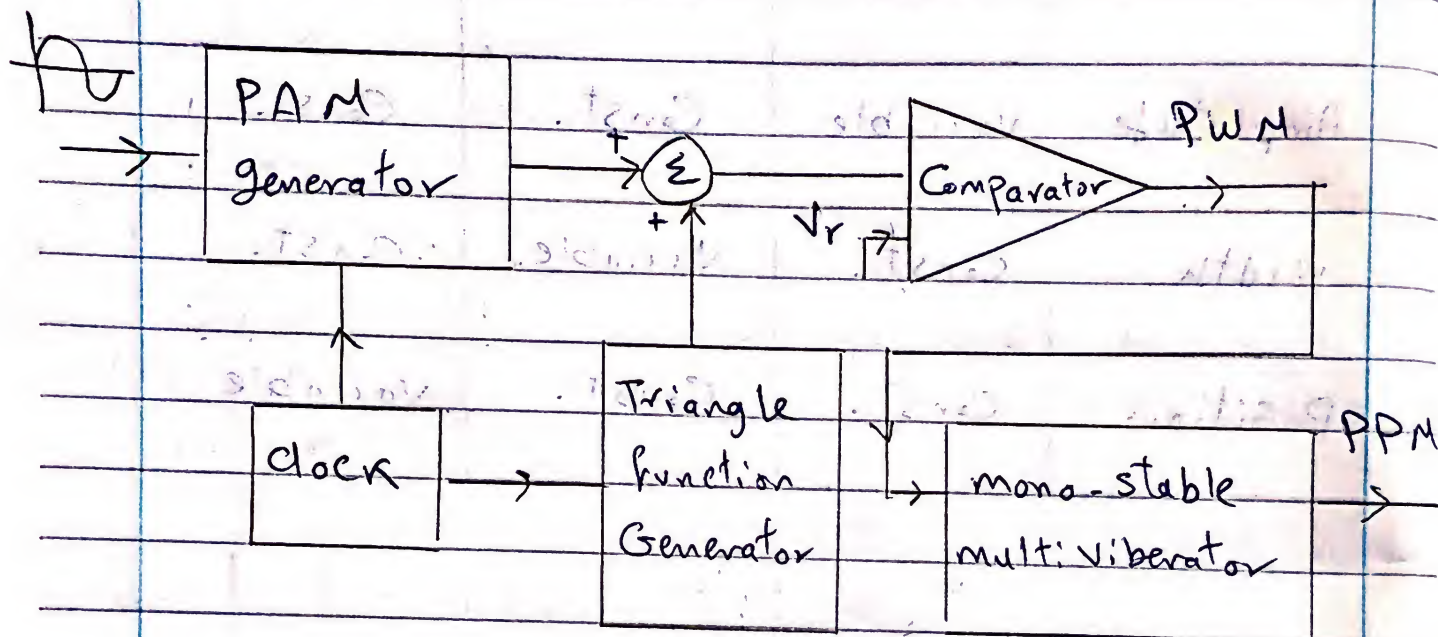 P.A.M
generator
+
Σ
+
Vr
Comparator
P.W.M
Clock
Triangle
function
Generator
mono-stable
multi viberator
PPM